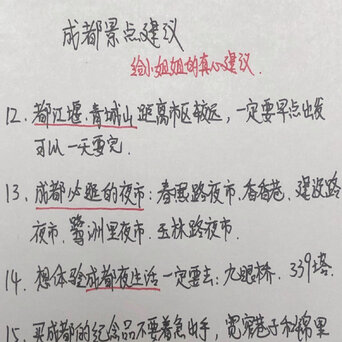 成都景点建议
给小姐姐的真心建议.
12. 都江堰.青城山 距离市区较远，一定要早点出发
可以一天耍完.
13. 成都必逛的夜市：春熙路夜市.香香巷、建设路
夜市.鹭洲里夜市.玉林路夜市.
14. 想体验成都夜生活一定要去：九眼桥、339塔.
15. 买成都的纪念品不要着急出手，宽窄巷子和锦里